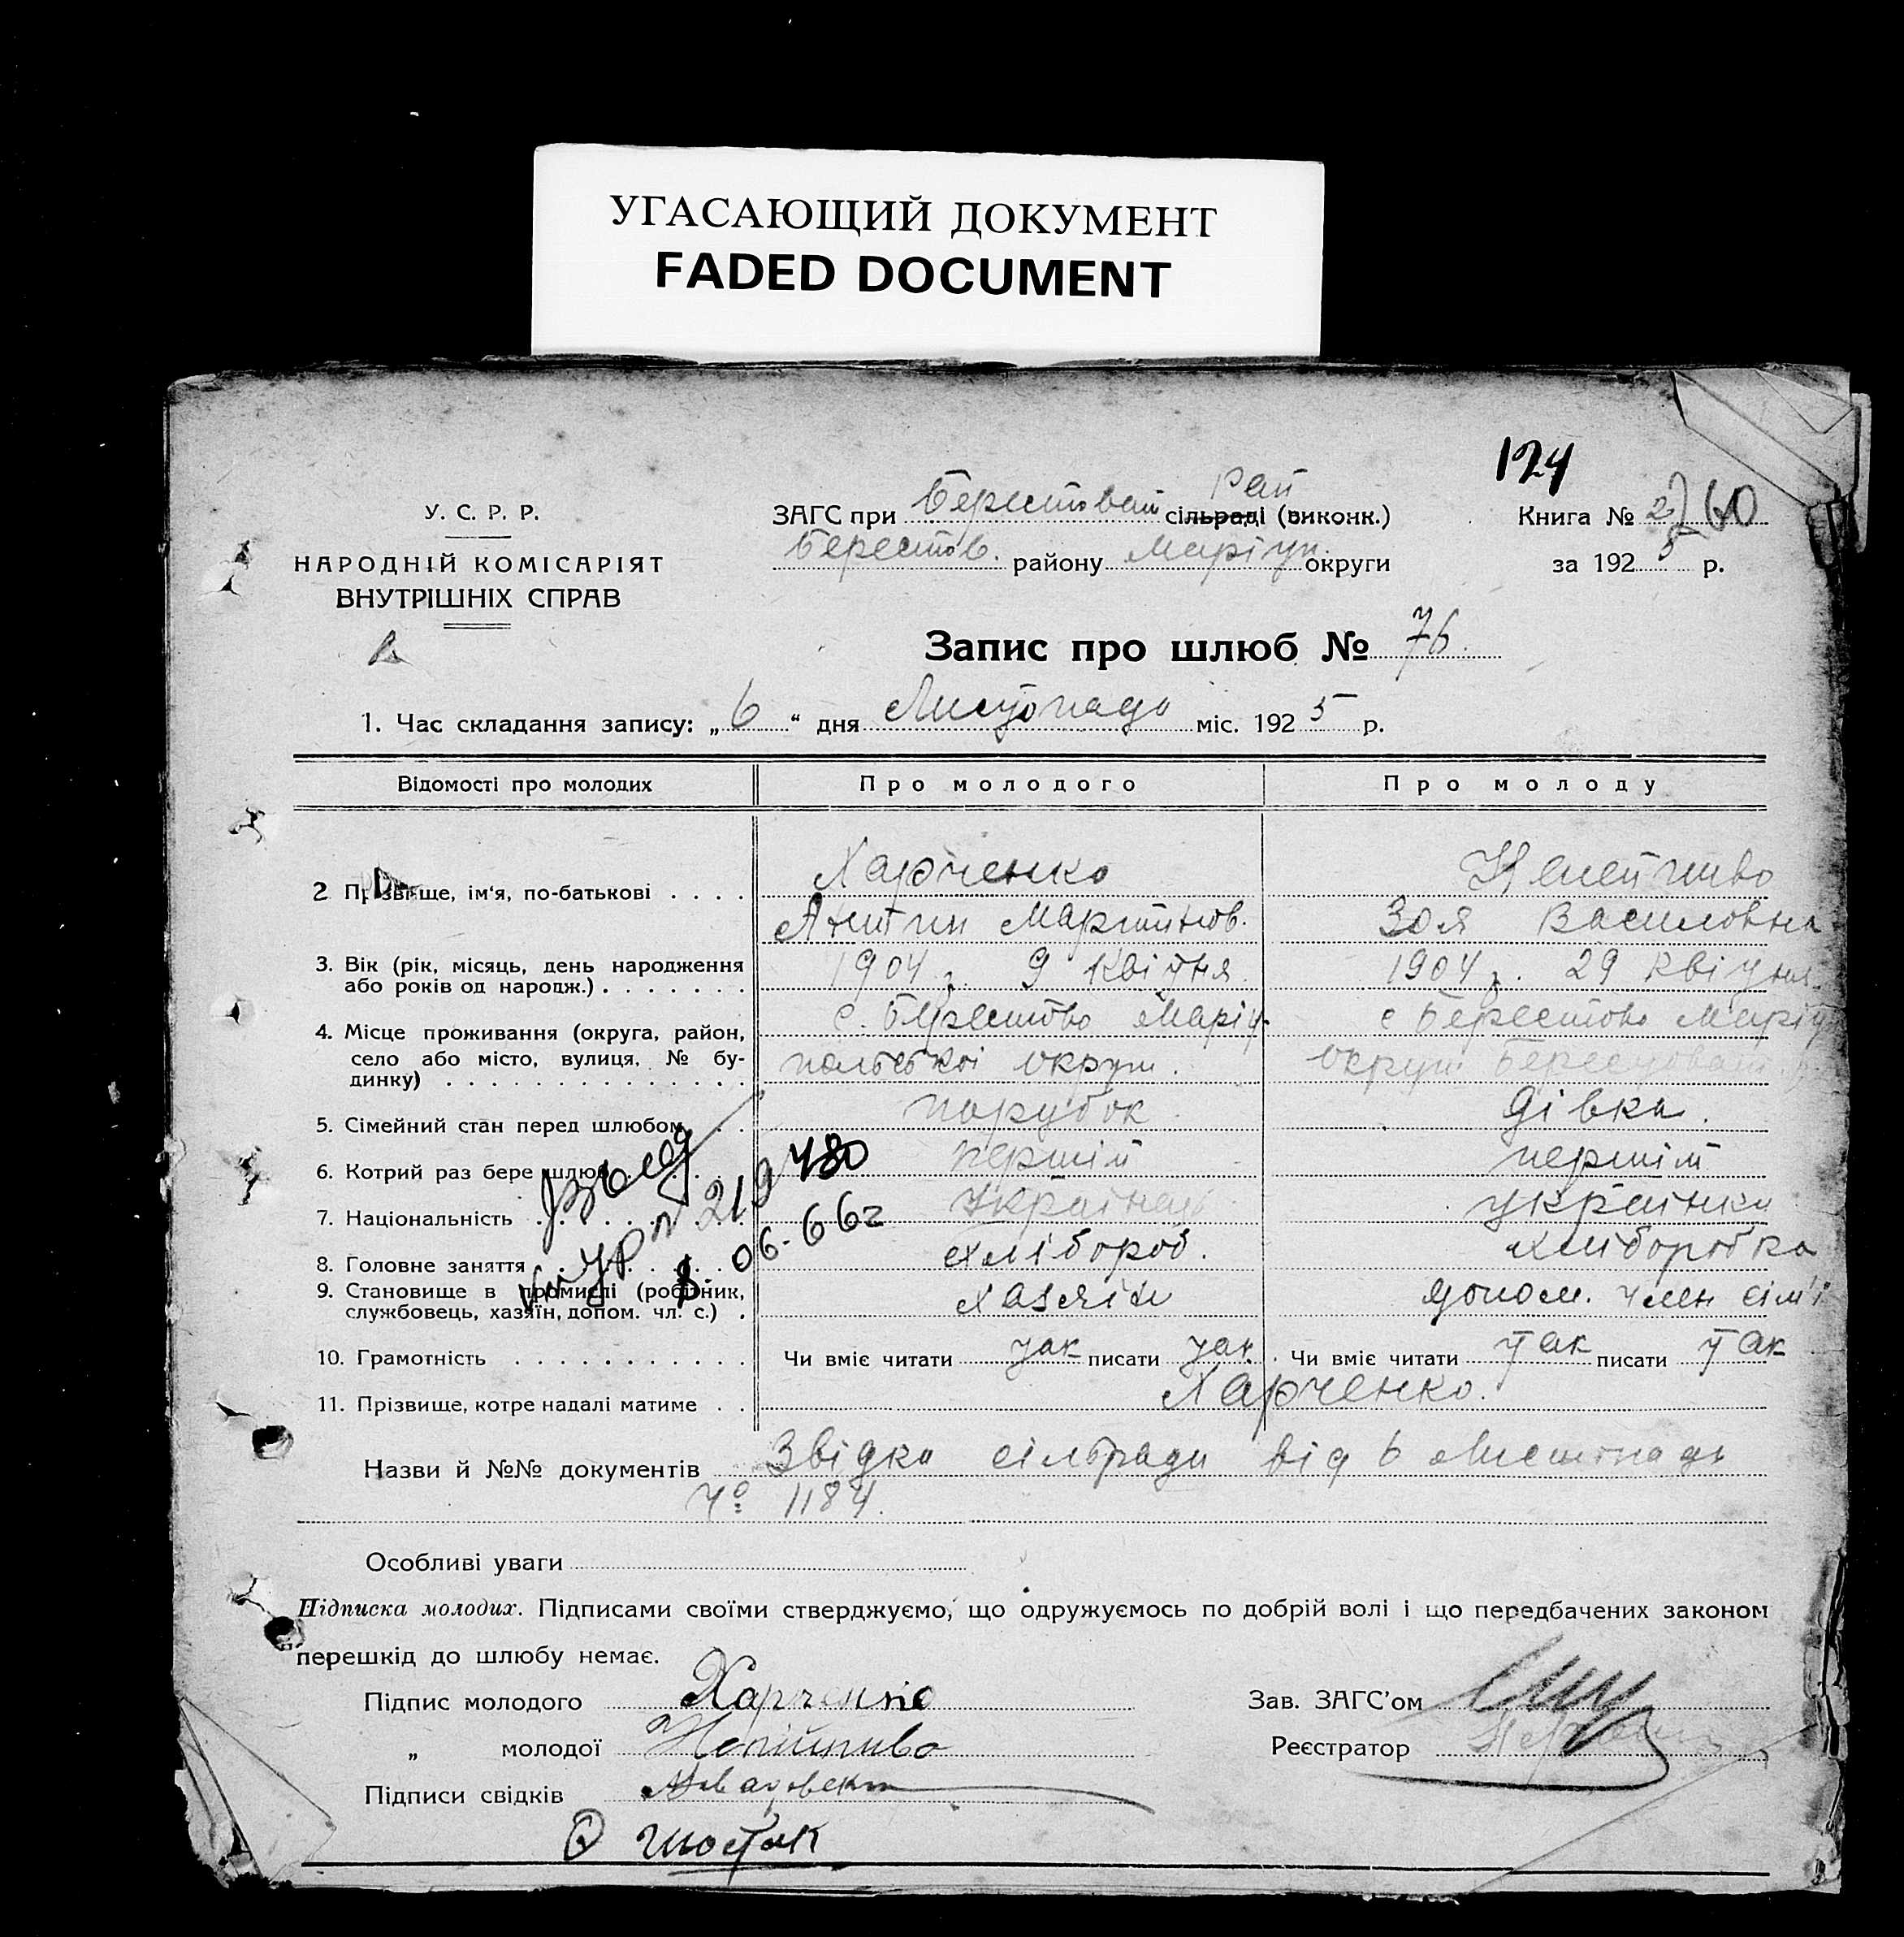 УГАСАЮЩИЙ ДОКУМЕНТ
FADED DOCUMENT
124
У. С. Р. Р.
НАРОДНІЙ КОМІСАРІЯТ
ВНУТРІШНІХ СПРАВ
ЗАГС при Берестоват сільраді (виконк.) Рай
Берестов. району Маріуп. округи
Книга № 2 760
за 1925 р.
Запис про шлюб № 76.
1. Час складання запису: „6“ дня Листопада міс. 1925 р.
Відомості про молодих Про молодого Про молоду
2 Прізвище, ім‘я, по-батькові . . . . Харченко
Антін Мартинов. Зоя Василовна
3. Вік (рік, місяць, день народження або років од народж.) . . . . . . . 1904 р. 9 Квітня. 1904 р. 29 Квітня.
4. Місце проживання (округа, район, с. Берестово Маріу- с Берестово Маріу
село або місто, вулиця, № бу-
динку) . . . . . . . . . . . . . . польської округи. округи
5. Сімейний стан перед шлюбом . . парубок дівка.
6. Котрий раз бере шлюб перший перший
7. Національність . . . . . . . . Українець українка
8. Головне заняття . . . . . . . хлібороб. хліборобка
9. Становище в промислі (робітник,
службовець, хазяїн, допом. чл. с.) . хазяїн допом. член сім'ї
219480
8. 06. 66г
10. Грамотність . . . . . . . . . . . Чи вміє читати так писати так. Чи вміє читати так писати так
11. Прізвище, котре надалі матиме . . Харченко.
Назви й №№ документів Звідка сільради від 6 Листопада
№ 1184.
Особливі уваги
Підписка молодих. Підписами своїми стверджуємо, що одружуємось по добрій волі і що передбачених законом
перешкід до шлюбу немає.
Підпис молодого Харченко Зав. ЗАГС’ом
„ молодої Реєстратор
Підписи свідків
Шостак